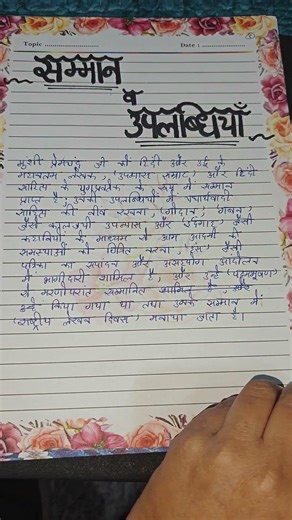 Topic .................... Date : ............
सम्मान
व
उपलब्धियाँ
मुंशी प्रेमचंद जी को हिंदी और उर्दू के
महानतम लेखक, (उपन्यास सम्राट) और हिंदी
साहित्य के युगप्रवर्तक के रूप में सम्मान
प्राप्त है, उनकी उपलब्धियों में यथार्थवादी
साहित्य की नींव रखना, (गोदान, गबन,
जैसे कालजयी उपन्यास और ईदगाह) जैसी
कहानियों के माध्यम से आम आदमी की
समस्याओं को चित्रित करना, 'हंस' जैसी
पत्रिका का संपादन और असहयोग आंदोलन
में भागीदारी शामिल है, और उन्हें (पद्मभूषण)
से मरणोपरांत सम्मानित शामिल है,
किया गया था तथा उनके सम्मान में:
(राष्ट्रीय लेखक दिवस) मनाया जाता है।